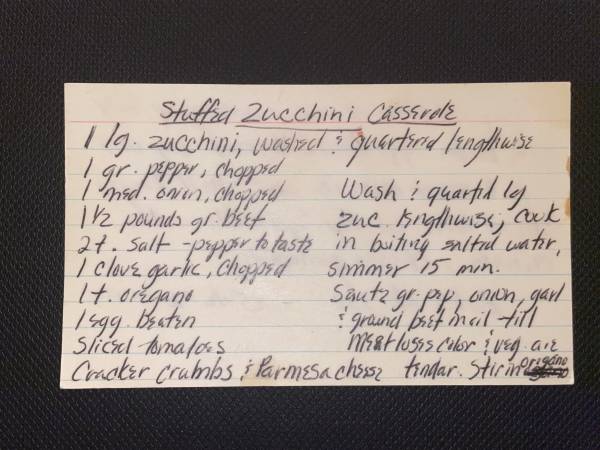 Stuffed Zucchini Casserole
1 lg. zucchini, washed & quartered lengthwise
1 gr. pepper, chopped
1 med. onion, chopped
1 1/2 pounds gr. beef
2 t. salt - pepper to taste
1 clove garlic, chopped
1 t. oregano
1 egg. beaten
Sliced tomatoes
Cracker crumbs & Parmesa cheese
Wash & quartid lg
zuc. lengthwise, cook
in boiling salted water,
simmer 15 min.
Saute gr. pep, onion, garl
& ground beef till
meat loses color & veg. are
tendar. Stir in oregano